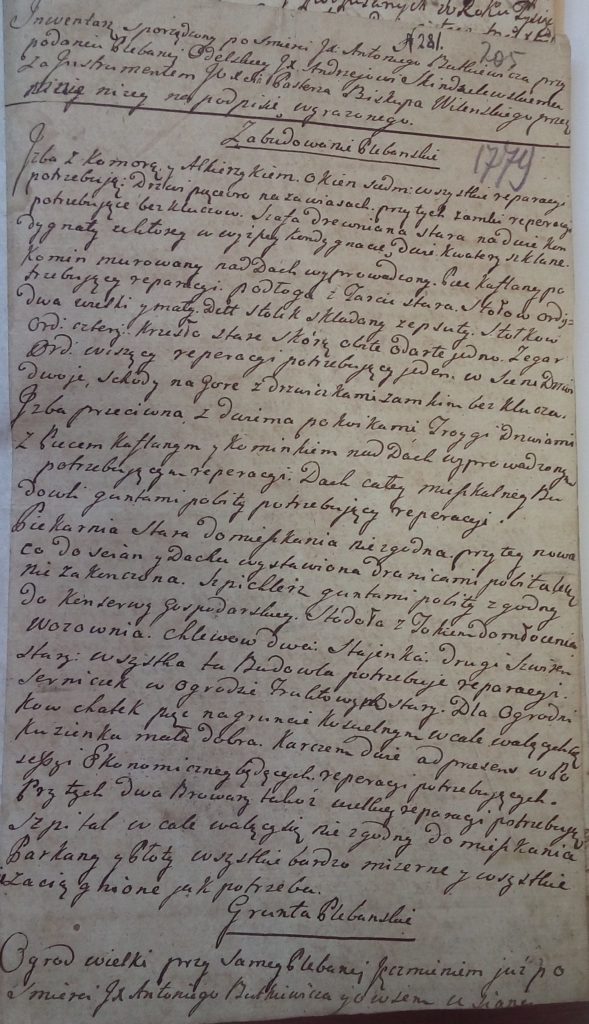 w Roku
№ 281.
205
Inwentarz sporządzony po śmierci Jx Antoniego Butkiewicza przy
podaniu Plebanij Odelskiey Jx Andrzejowi Skindzelewskiemu
za Instrumentem Biskupa Wilenskiego przez
niżey na podpisie wyrażonego.
Zabudowanie Plebanskie
1779
Izba z komorą y Alkierzykiem. Okien siedm: wszystkie reparacyi
potrzebują: Drzwi pięcioro na zawiasach. przy tych zamki reperacyi
potrzebujące bez kluczow. Szafa drewniana stara na dwie kon
dygnacye u ktorey w wyższey kondygnacyi, dwie kwatery szklane.
Komin murowany nad Dach wyprowadzony. Piec kaflany po
trzebujący reparacyi. podłoga z Tarcic stara. Stołow ordy:
dwa wielki y mały. Dett stolik składany zepsuty. Stołkow
ord: cztery. krzesło stare skórą obite odarte jedno. Zegar
Ord: wiszący reperacyi potrzebujący jeden. w Sieni Drzwi
dwoje, schody na gorę z drzwiczkami zamkiem bez klucza.
Izba przeciwna z dwiema pokoikami Troygi drzwiami
z Piecem kaflanym y kominkiem nad Dach wyprowadzonym
potrzebującym reperacyi. Dach całey mieszkalney Bu
dowli guntami pobity potrzebujący reperacyi.
Piekarnia stara do mieszkania niezgodna. przy tey nowa
co do scian y Dachu wystawiona dranicami pobita lecz
nie zakonczona. Szpichlerz guntami pobity zgodny
do konserwy gospodarskiey. Stodoła z Tokiem do młocenia
Wozownia. Chlewow dwa. Stajenka. drugi
stary: wszystka ta Budowla potrzebuje reparacyi.
Serniczek w ogrodzie stary. Dla Ogrodni
kow chatek pięć na gruncie Kościelnym wcale walących się
Kuzienka mała dobra. Karczem dwie ad praesens w Po
sessyi Ekonomiczney będących. reperacyi potrzebujących.
Przy tych dwa Browary takoż wielkiey reparacyi potrzebują
Szpital w cale walący się nie zgodny do mieszkania
Parkany y Płoty wszystkie bardzo mizerne y wszystkie
zaciągnione jak potrzeba.
Grunta Plebanskie
Ogrod wielki przy samey Plebanij Jęczmieniem już po
smierci Jx Antoniego Butkiewicza y owsem